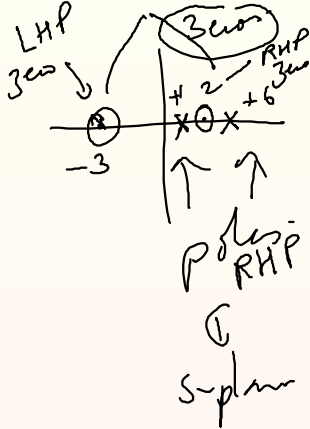 LHP
zero
zeros
RHP
zero
+1 2 +6
-3
poles
RHP
s-plane